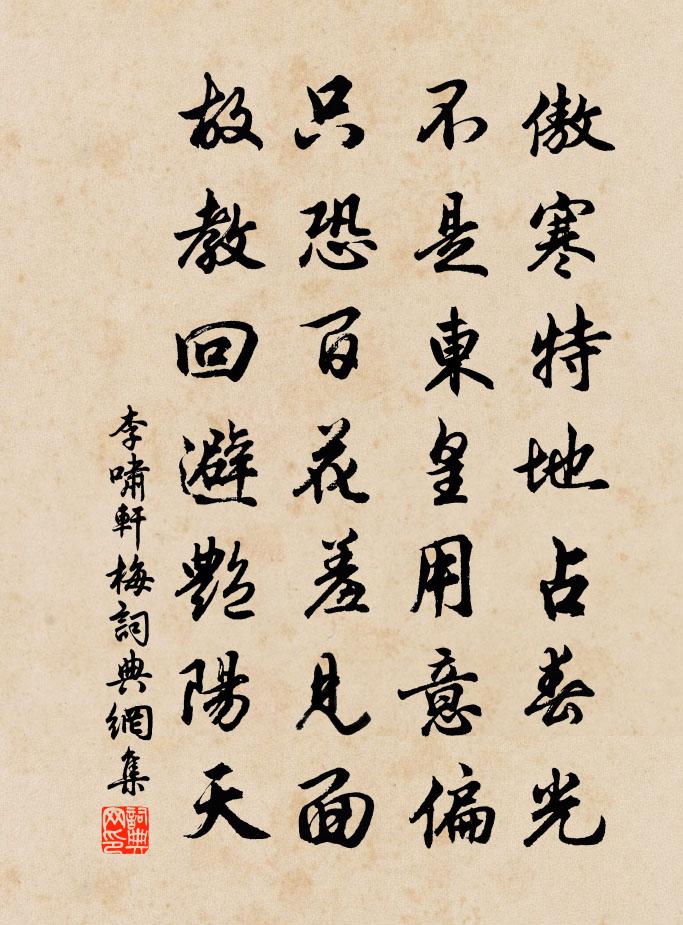 傲寒特地占春光
不是東皇用意偏
只恐百花羞見面
故教回避艷陽天
李嘯軒梅詞典網集
詞典網印